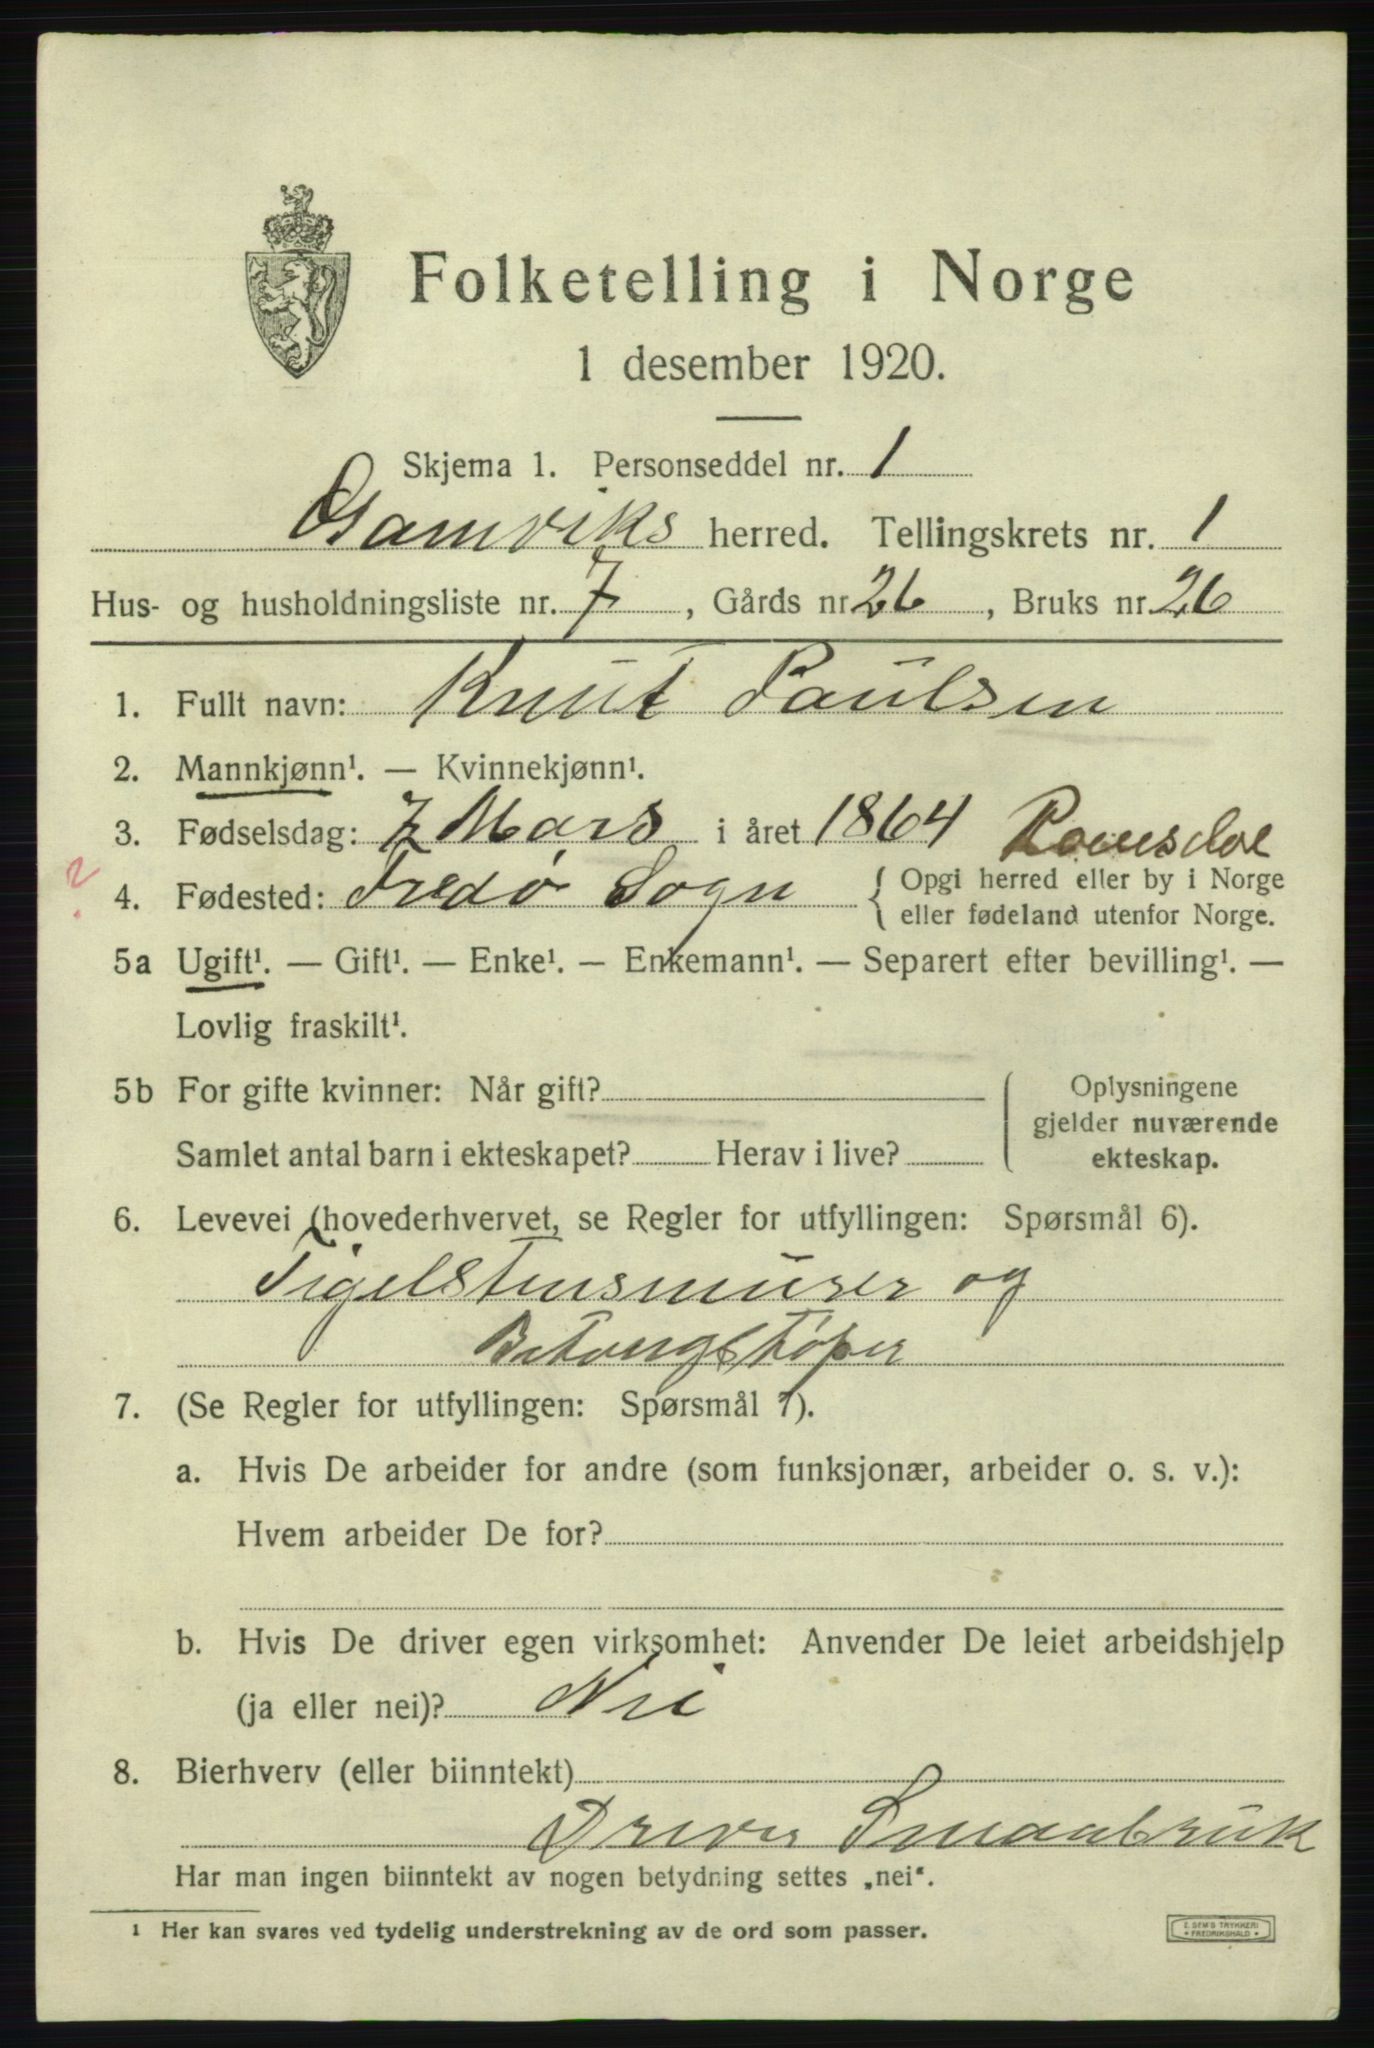 Folketelling i Norge
1 desember 1920.
Skjema 1. Personseddel nr. 1
Gamviks herred. Tellingskrets nr. 1
Hus- og husholdningsliste nr. 7, Gårds nr. 26, Bruks nr. 26
1. Fullt navn: Knut Paulsen
2. Mannkjønn¹. — Kvinnekjønn¹.
3. Fødselsdag: 7 Mars i året 1864 Romsdal
? 4. Fødested: Fredø Sogn { Opgi herred eller by i Norge
eller fødeland utenfor Norge.
5a Ugift¹. — Gift¹. — Enke¹. — Enkemann¹. — Separert efter bevilling¹. —
Lovlig fraskilt¹.
5b For gifte kvinner: Når gift? Oplysningene
gjelder nuværende
Samlet antal barn i ekteskapet? Herav i live? ekteskap.
6. Levevei (hovederhvervet, se Regler for utfyllingen: Spørsmål 6).
Tigelstensmurer og
Betongstøper
7. (Se Regler for utfyllingen: Spørsmål 7).
a. Hvis De arbeider for andre (som funksjonær, arbeider o. s. v.):
Hvem arbeider De for?
b. Hvis De driver egen virksomhet: Anvender De leiet arbeidshjelp
(ja eller nei)? Nei
8. Bierhverv (eller biinntekt)
Driver Smaabruk
Har man ingen biinntekt av nogen betydning settes „nei“.
¹ Her kan svares ved tydelig understrekning av de ord som passer.
E. SEM'S TRYKKERI
FREDRIKSHALD